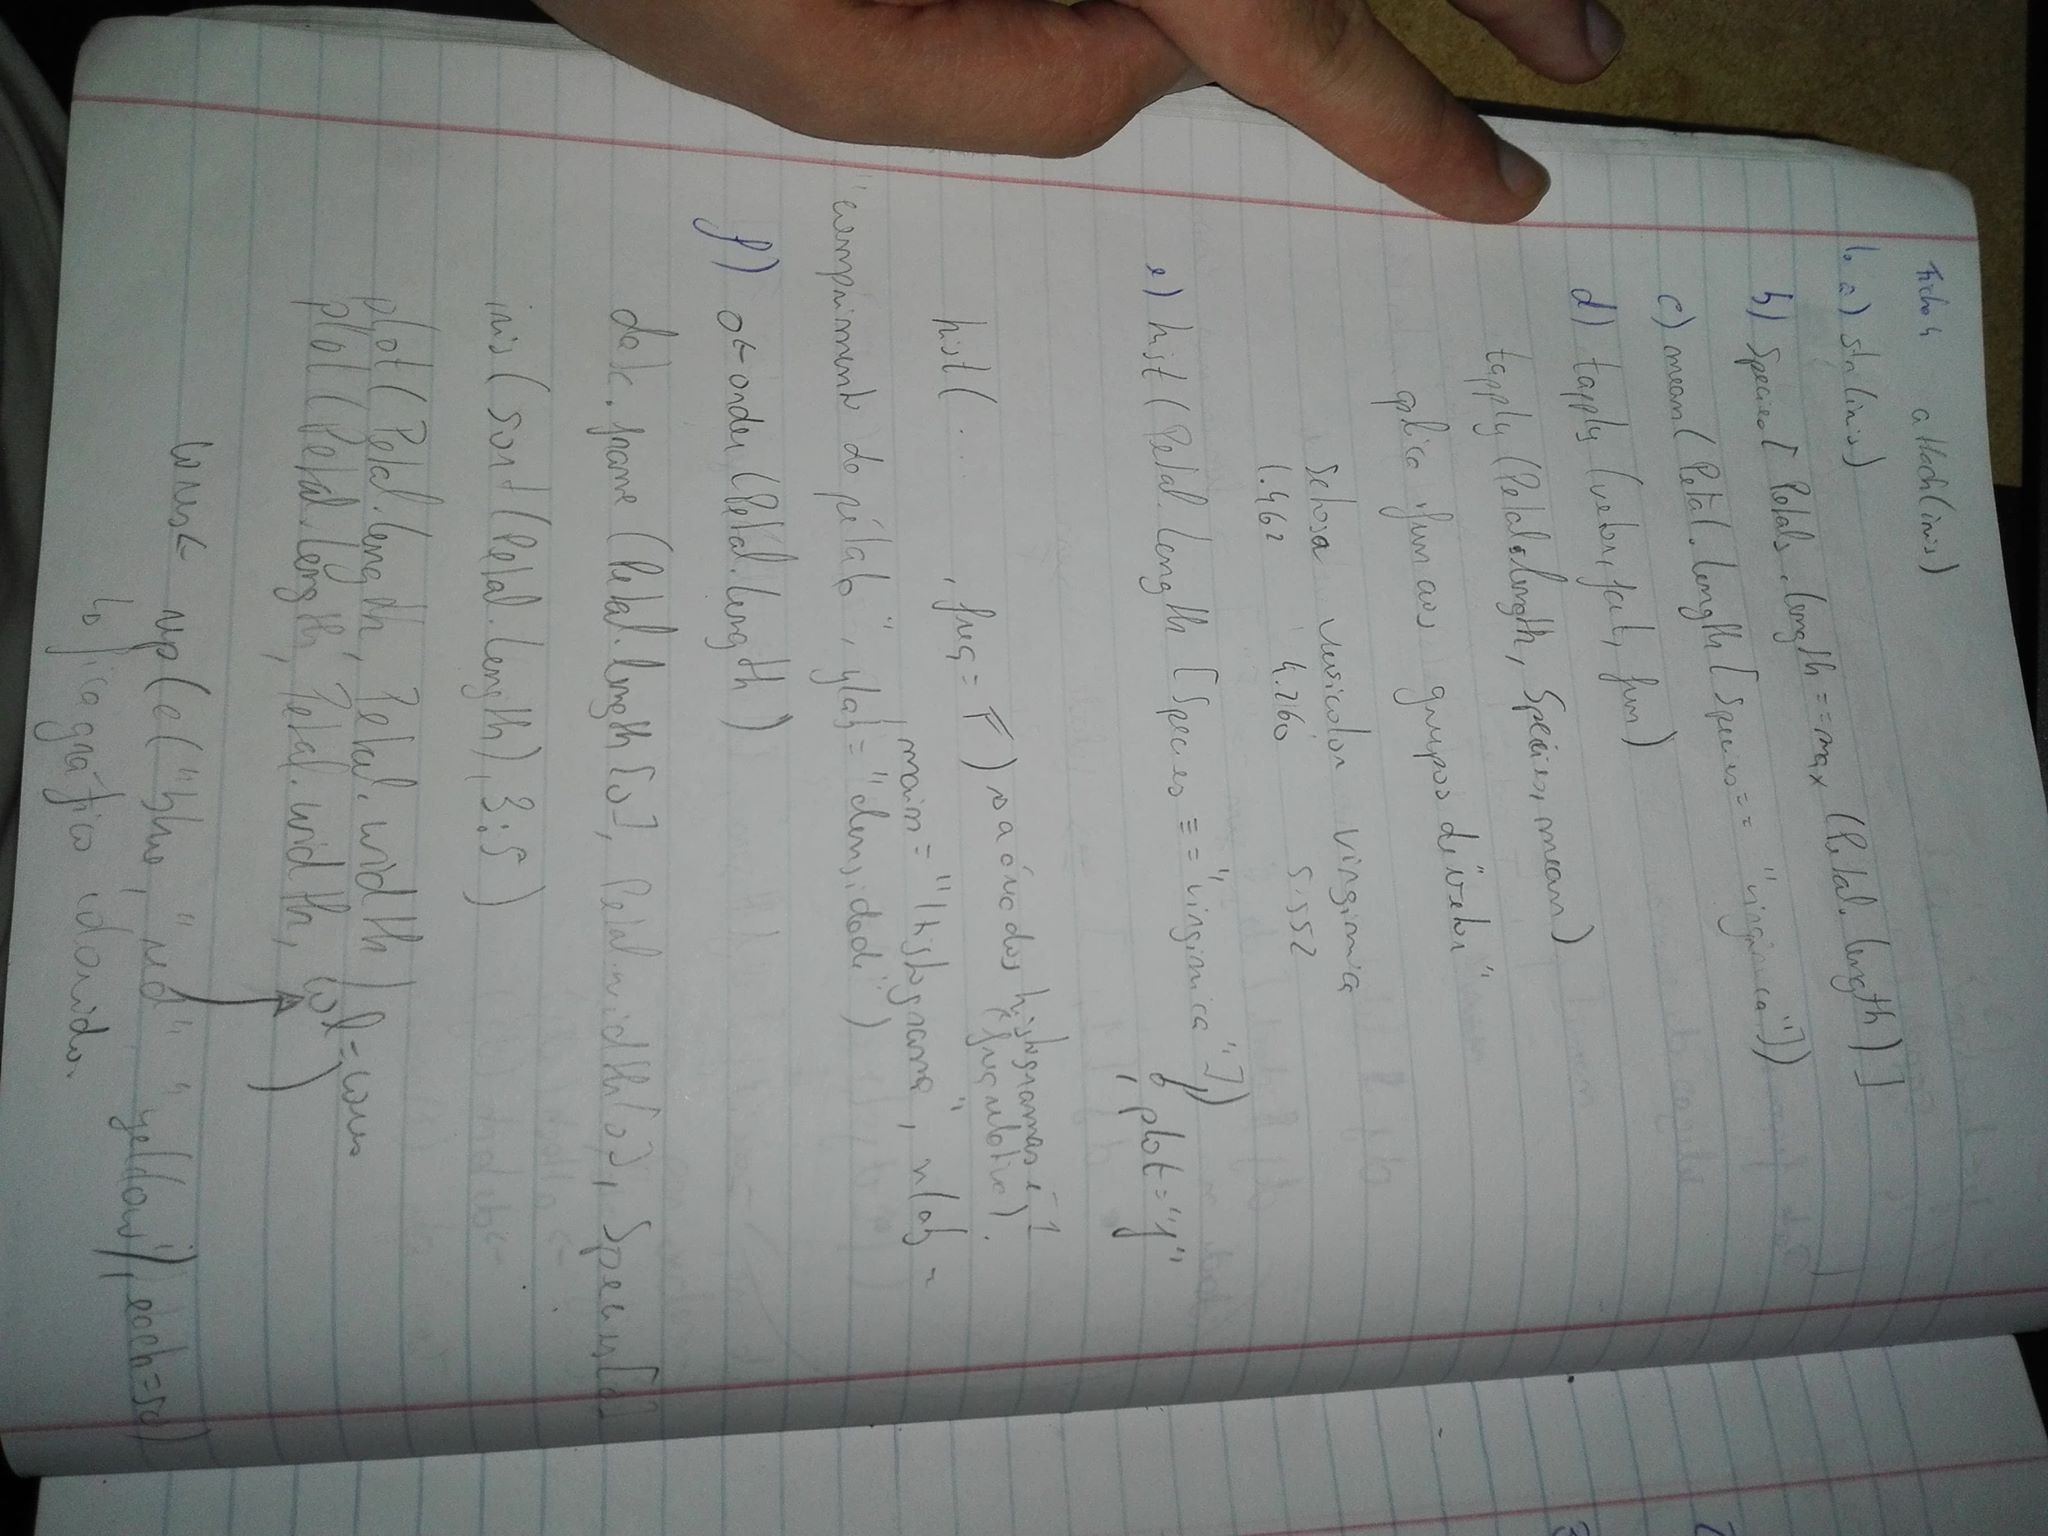 Ficha 4 attach(iris)
1. a) str(iris)
b) Species[ Petals.length==max (Petal.length) ]
c) mean( Petal.length [ Species== "virginica"])
d) tapply (vetor, fact, fun)
tapply (Petal.length, Species, mean)
aplica fun aos grupos de "vetor"
setosa versicolor virginica
1.462 4.260 5.552
e) hist ( Petal.length [Species =="virginica"],)
, plot="f"
hist( ... , freq = F ) → a área dos histogramas é 1
(freq relativa).
, main= "histograma", xlab =
"comprimento da pétala", ylab= "densidade" )
f) o← order (Petal.length)
data.frame (Petal.length [o], Petal.width[o], Species[o]
iris ( sort (Petal.length), 3:5 )
plot( Petal.length, Petal.width )
plot (Petal.length, Petal.width, col=cores )
cores← rep(c("blue, "red" "yellow"), each=50)
↳ fica gráfico colorido.